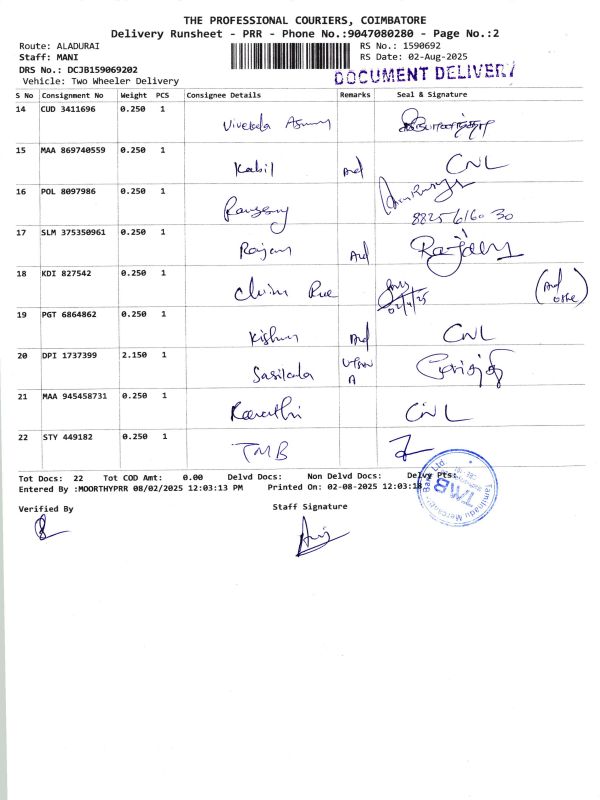 THE PROFESSIONAL COURIERS, COIMBATORE
Delivery Runsheet - PRR - Phone No.:9047080280 - Page No.:2
Route: ALADURAI RS No.: 1590692
Staff: MANI RS Date: 02-Aug-2025
DRS No.: DCJB159069202 DOCUMENT DELIVERY
Vehicle: Two Wheeler Delivery
S No Consignment No Weight PCS Consignee Details Remarks Seal & Signature
14 CUD 3411696 0.250 1
15 MAA 869740559 0.250 1 Kabil CNL
16 POL 8097986 0.250 1
8825 616030
17 SLM 375350961 0.250 1 Rajan
18 KDI 827542 0.250 1
19 PGT 6864862 0.250 1 Kishor CNL
20 DPI 1737399 2.150 1 Sasikala
21 MAA 945458731 0.250 1 CNL
22 STY 449182 0.250 1 TMB
Tot Docs: 22 Tot COD Amt: 0.00 Delvd Docs: Non Delvd Docs: Delvy Pts:
Entered By :MOORTHYPRR 08/02/2025 12:03:13 PM Printed On: 02-08-2025 12:03:18
TMB
Tamilnadu Mercantile Bank Ltd
Verified By Staff Signature